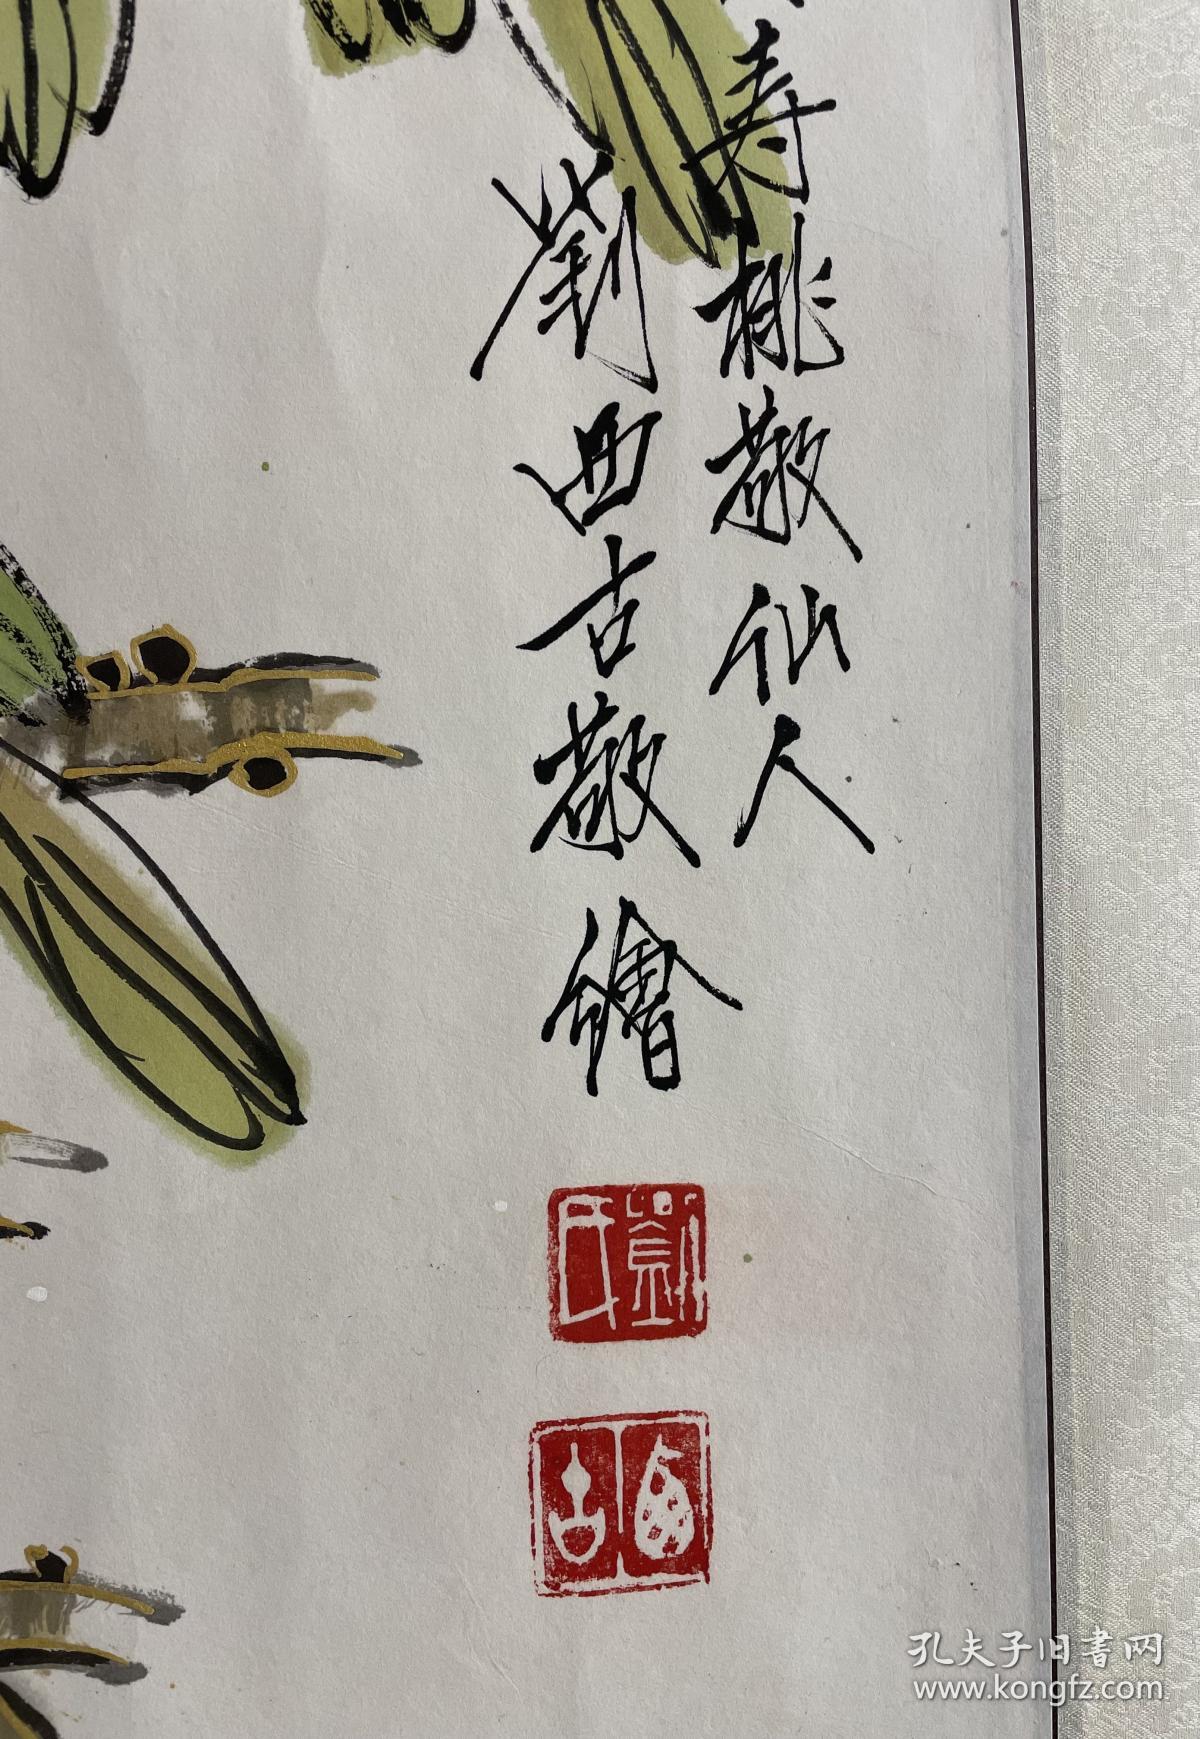 寿桃敬仙人
劉西古敬繪
劉氏
西古
孔夫子旧书网
www.kongfz.com